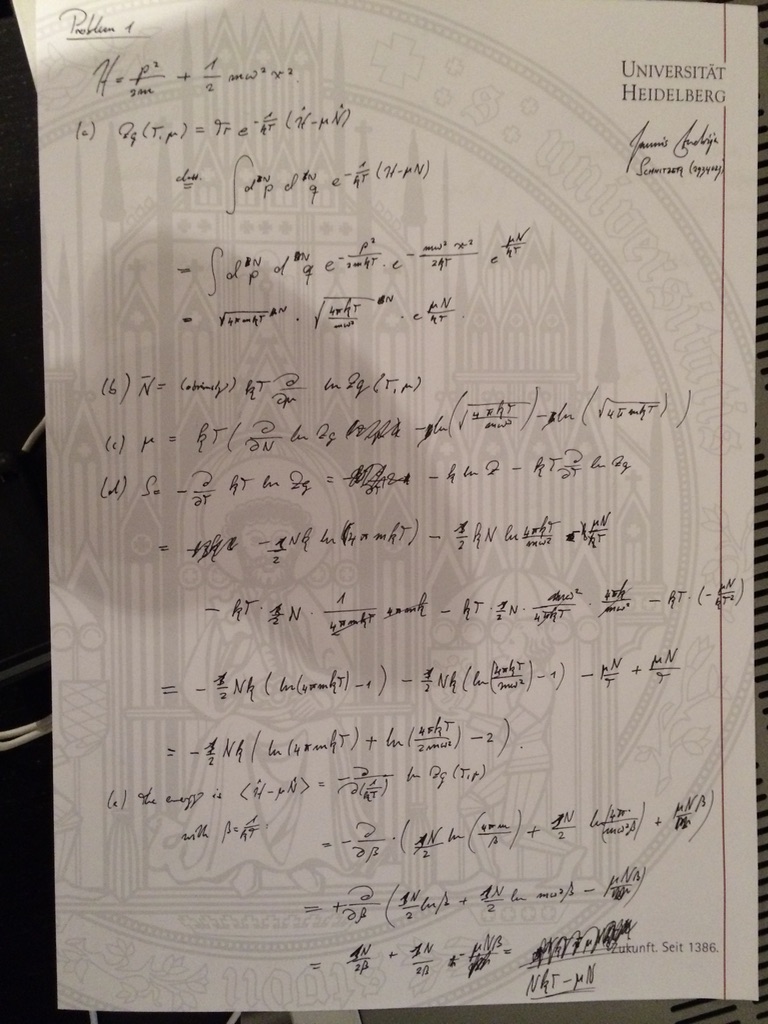 Problem 1
H = p²/2m + 1/2 mω²x².
UNIVERSITÄT
HEIDELBERG
(a) Zg(T,μ) = Tr e^{-1/kT (Ĥ-μN̂)}
∫ d^N p d^N q e^{-1/kT (H-μN)}
= ∫ d^N p d^N q e^{-p²/2mkT} · e^{-mω²x²/2kT} e^{μN/kT}
= √(4πmkT)^N · √(4πkT/mω²)^N · e^{μN/kT}.
(b) N̄ = (obviously) kT ∂/∂μ ln Zg(T,μ)
(c) μ = kT (∂/∂N ln Zg - ln(√(4πkT/mω²)) - ln(√(4πmkT)))
(d) S = -∂/∂T kT ln Zg = - k ln Z - kT ∂/∂T ln Zg
= -1/2 Nk ln(4πmkT) - 1/2 kN ln 4πkT/mω² - k μN/kT
- kT · 1/2 N · 1/4πmkT 4πmk - kT · 1/2 N · mω²/4πkT · 4πk/mω² - kT · (-μN/kT²)
= -1/2 Nk (ln(4πmkT) - 1) - 1/2 Nk (ln(4πkT/mω²) - 1) - μN/T + μN/T
= -1/2 Nk (ln(4πmkT) + ln(4πkT/2mω²) - 2).
(e) the energy is ⟨Ĥ-μN̂⟩ = -∂/∂(1/kT) ln Zg(T,μ)
with β = 1/kT:
= -∂/∂β · (N/2 ln(4πm/β) + N/2 ln(4π/mω²β) + μNβ)
= +∂/∂β (N/2 ln β + N/2 ln mω²β - μNβ)
= N/2β + N/2β - μNβ =
Zukunft. Seit 1386.
NkT - μN